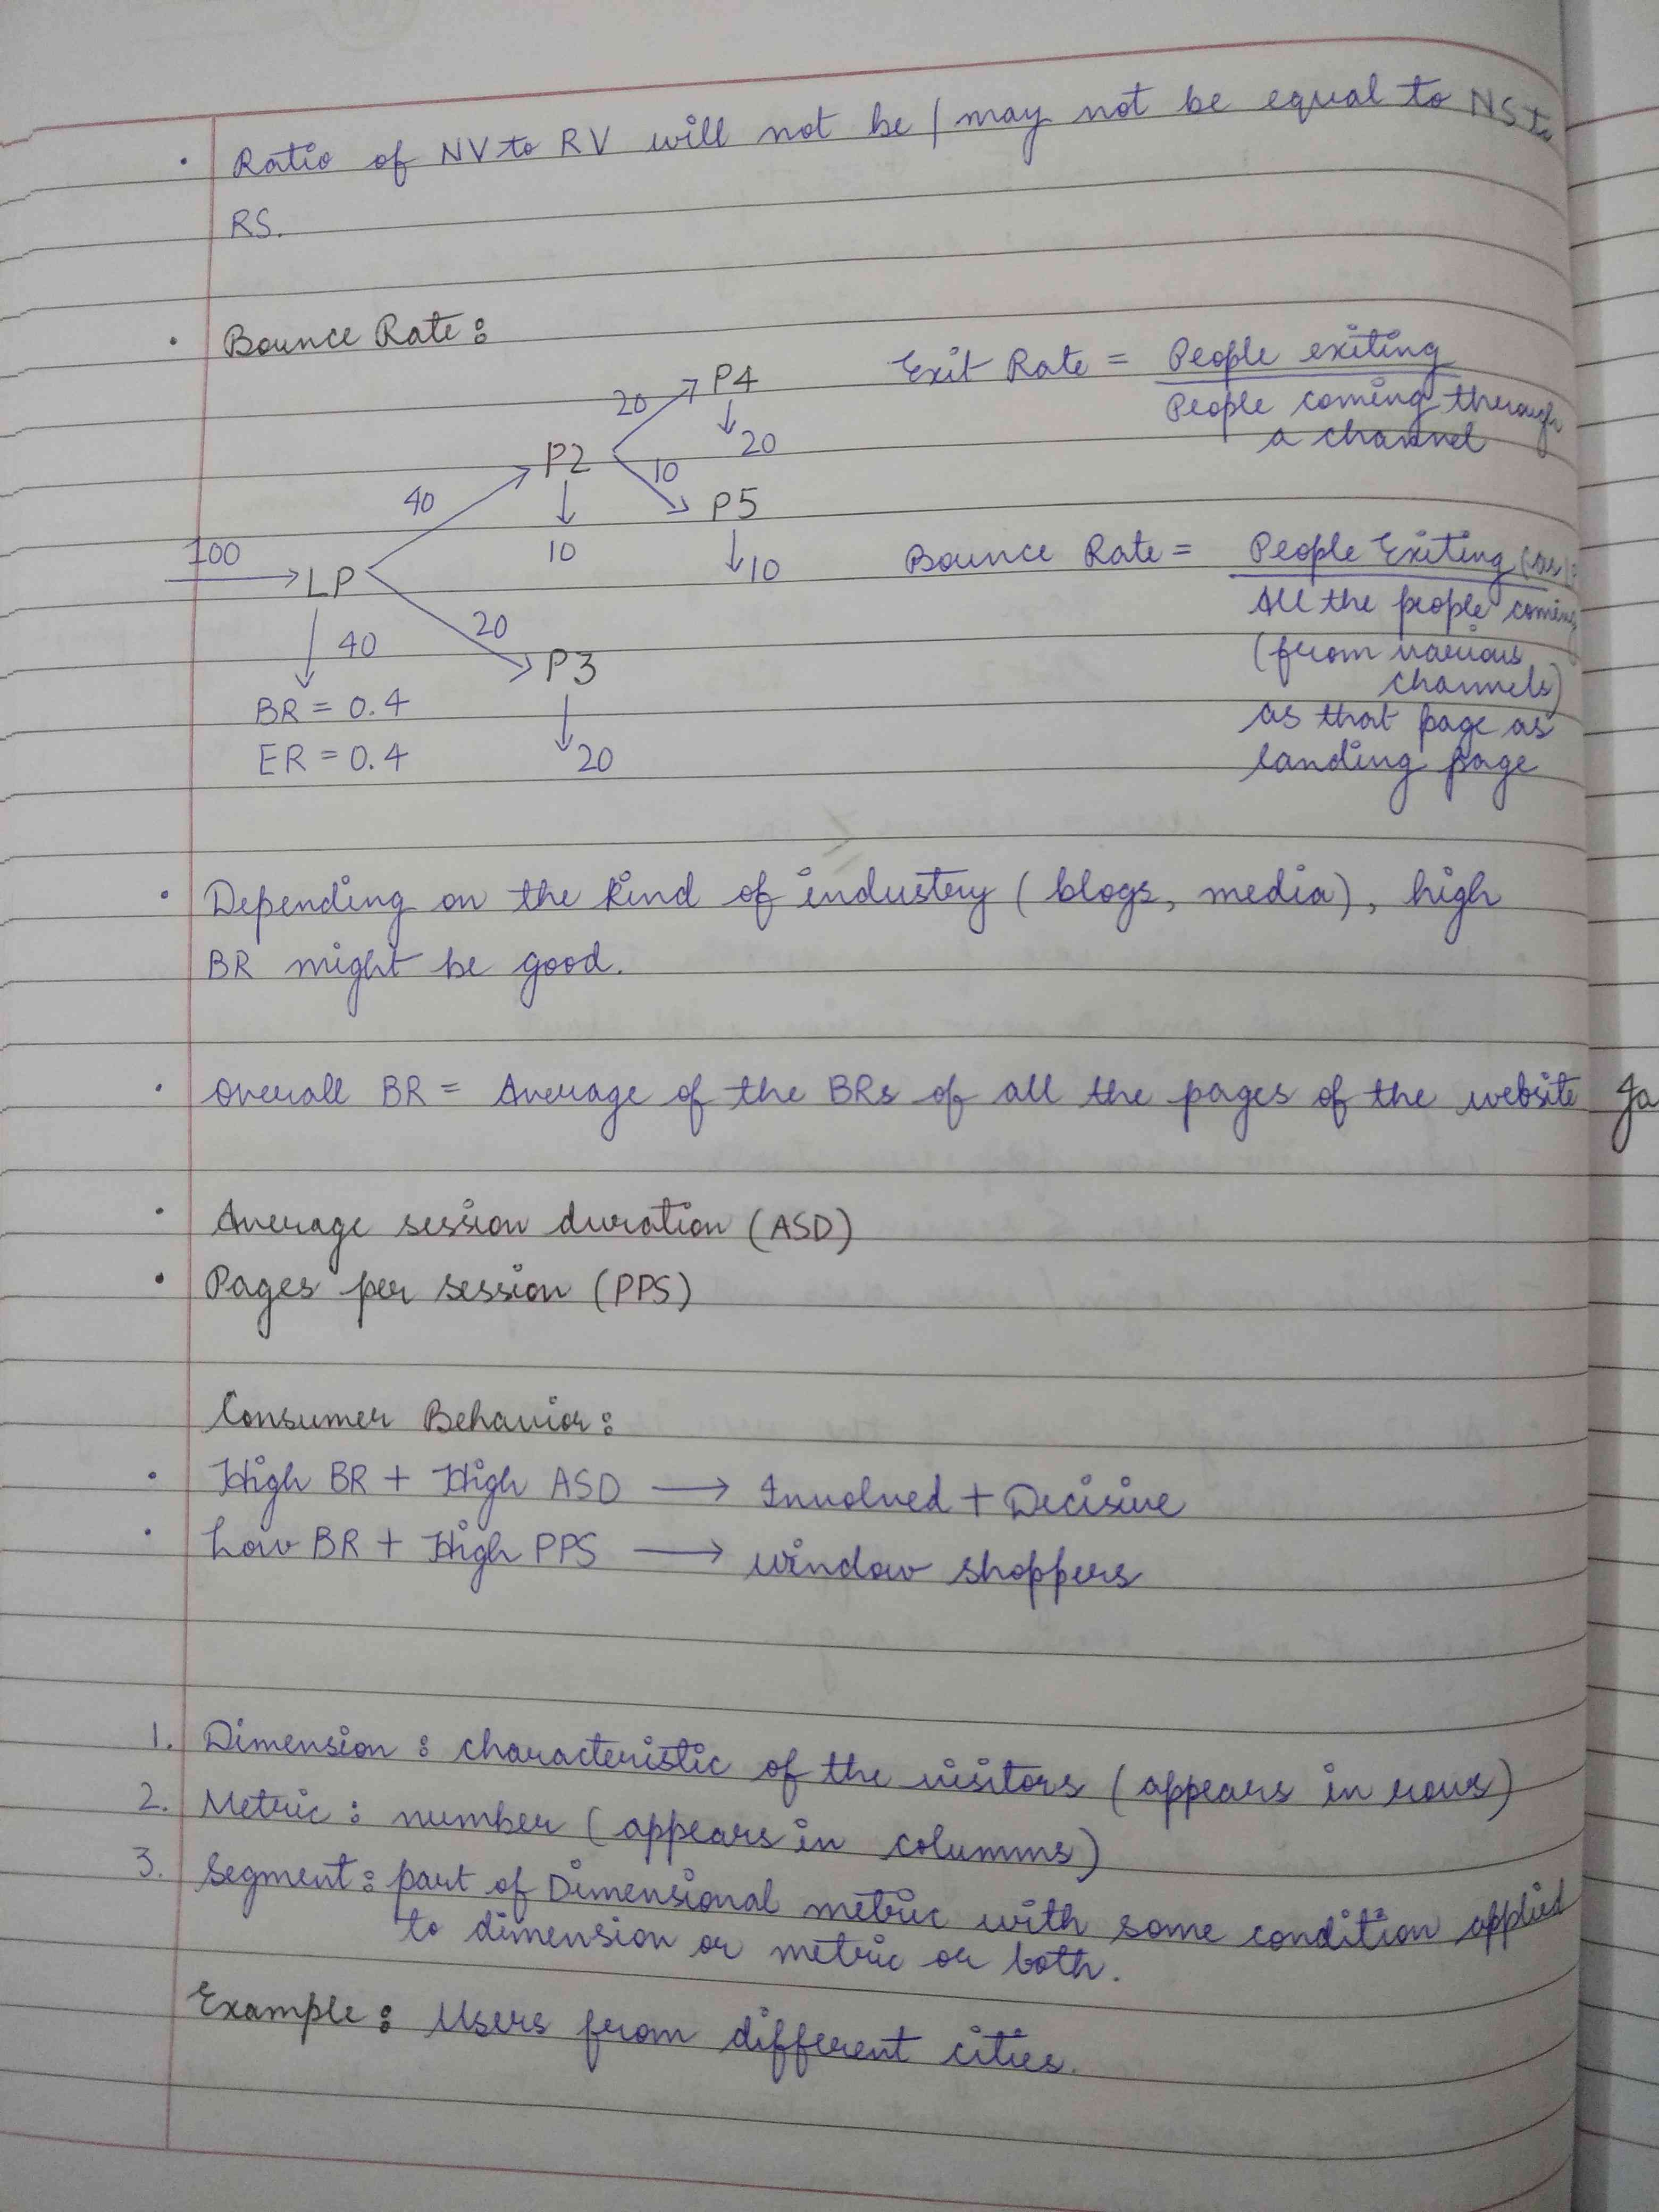 • Ratio of NV to RV will not be / may not be equal to NS to
RS.
• Bounce Rate :
Exit Rate = People exiting
People coming through
a channel
20 P4
20
P2
10 P5
40
10
10
100 LP
Bounce Rate = People Exiting
All the people coming
(from various
channels)
as that page as
landing page
40
20 P3
20
BR = 0.4
ER = 0.4
• Depending on the kind of industry ( blogs, media), high
BR might be good.
• Overall BR = Average of the BRs of all the pages of the website
• Average session duration (ASD)
• Pages per session (PPS)
Consumer Behavior :
• High BR + High ASD → Involved + Decisive
• Low BR + High PPS → window shoppers
1. Dimension : characteristic of the visitors ( appears in rows)
2. Metric : number ( appears in columns)
3. Segment : part of Dimensional metric with some condition applied
to dimension or metric or both.
Example : Users from different cities.